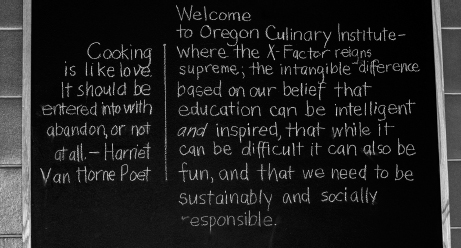 Cooking
is like love.
It should be
entered into with
abandon, or not
at all. – Harriet
Van Horne Poet
Welcome
to Oregon Culinary Institute–
where the X-Factor reigns
supreme; the intangible difference
based on our belief that
education can be intelligent
and inspired, that while it
can be difficult it can also be
fun, and that we need to be
sustainably and socially
responsible.